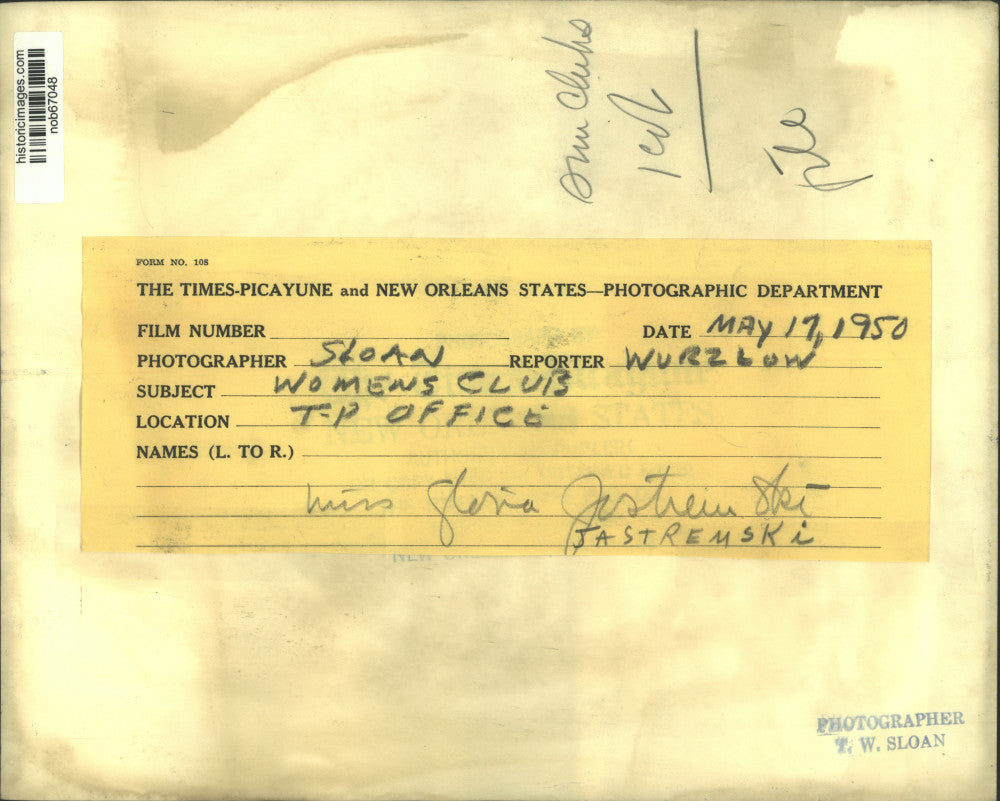 historicimages.com
nob67048
file
FORM NO. 108
THE TIMES-PICAYUNE and NEW ORLEANS STATES—PHOTOGRAPHIC DEPARTMENT
FILM NUMBER
DATE MAY 17, 1950
PHOTOGRAPHER SLOAN REPORTER WURZLOW
SUBJECT WOMENS CLUB
LOCATION T-P OFFICE
NAMES (L. TO R.)
Miss Gloria Jastremski
JASTREMSKi
PHOTOGRAPHER
T. W. SLOAN